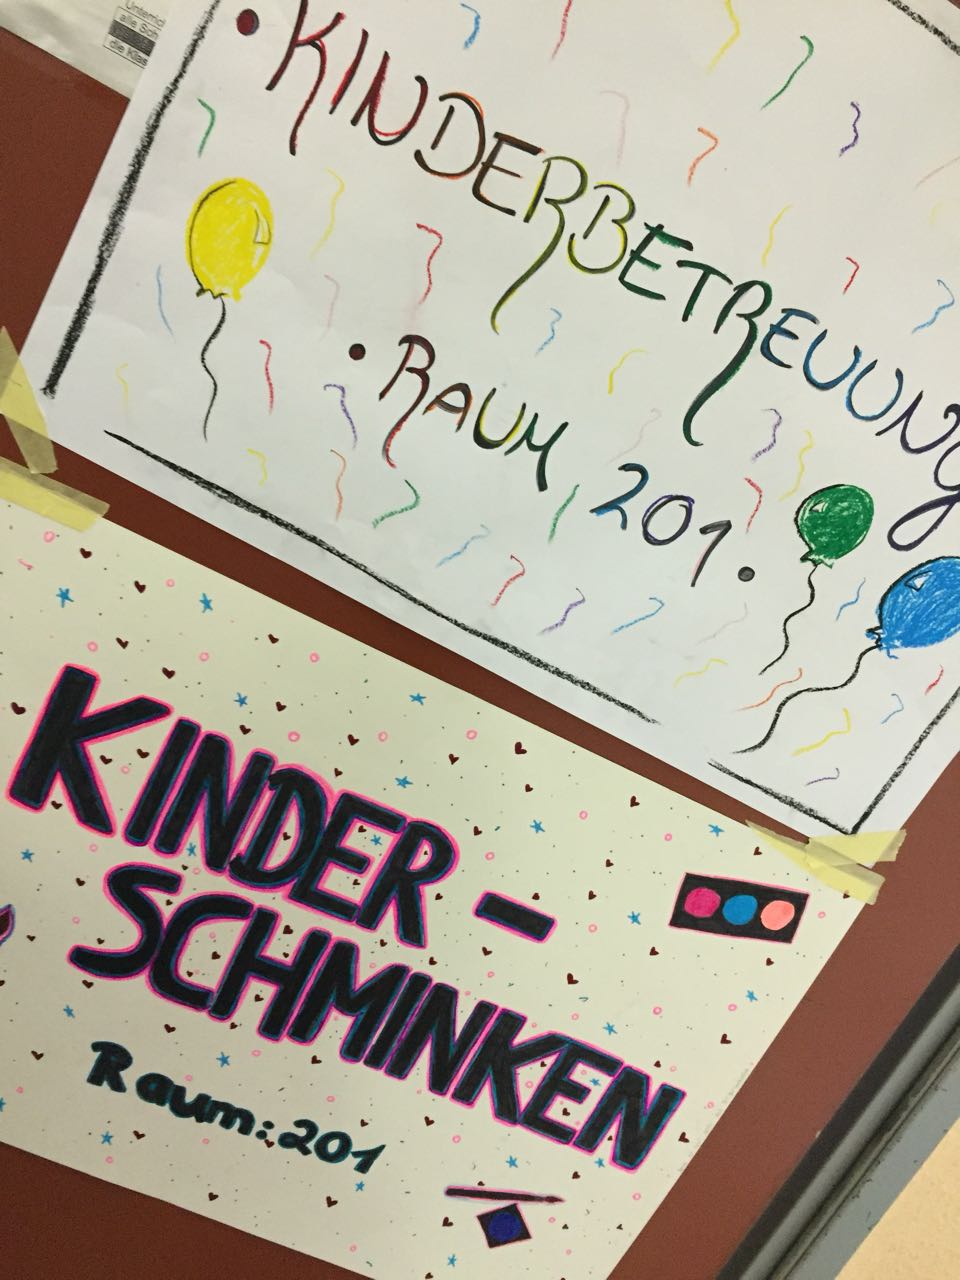 Unterric
alle Sch
die Klas
• KINDERBETREUUNG
• RAUM 201 •
KINDER -
SCHMINKEN
Raum: 201